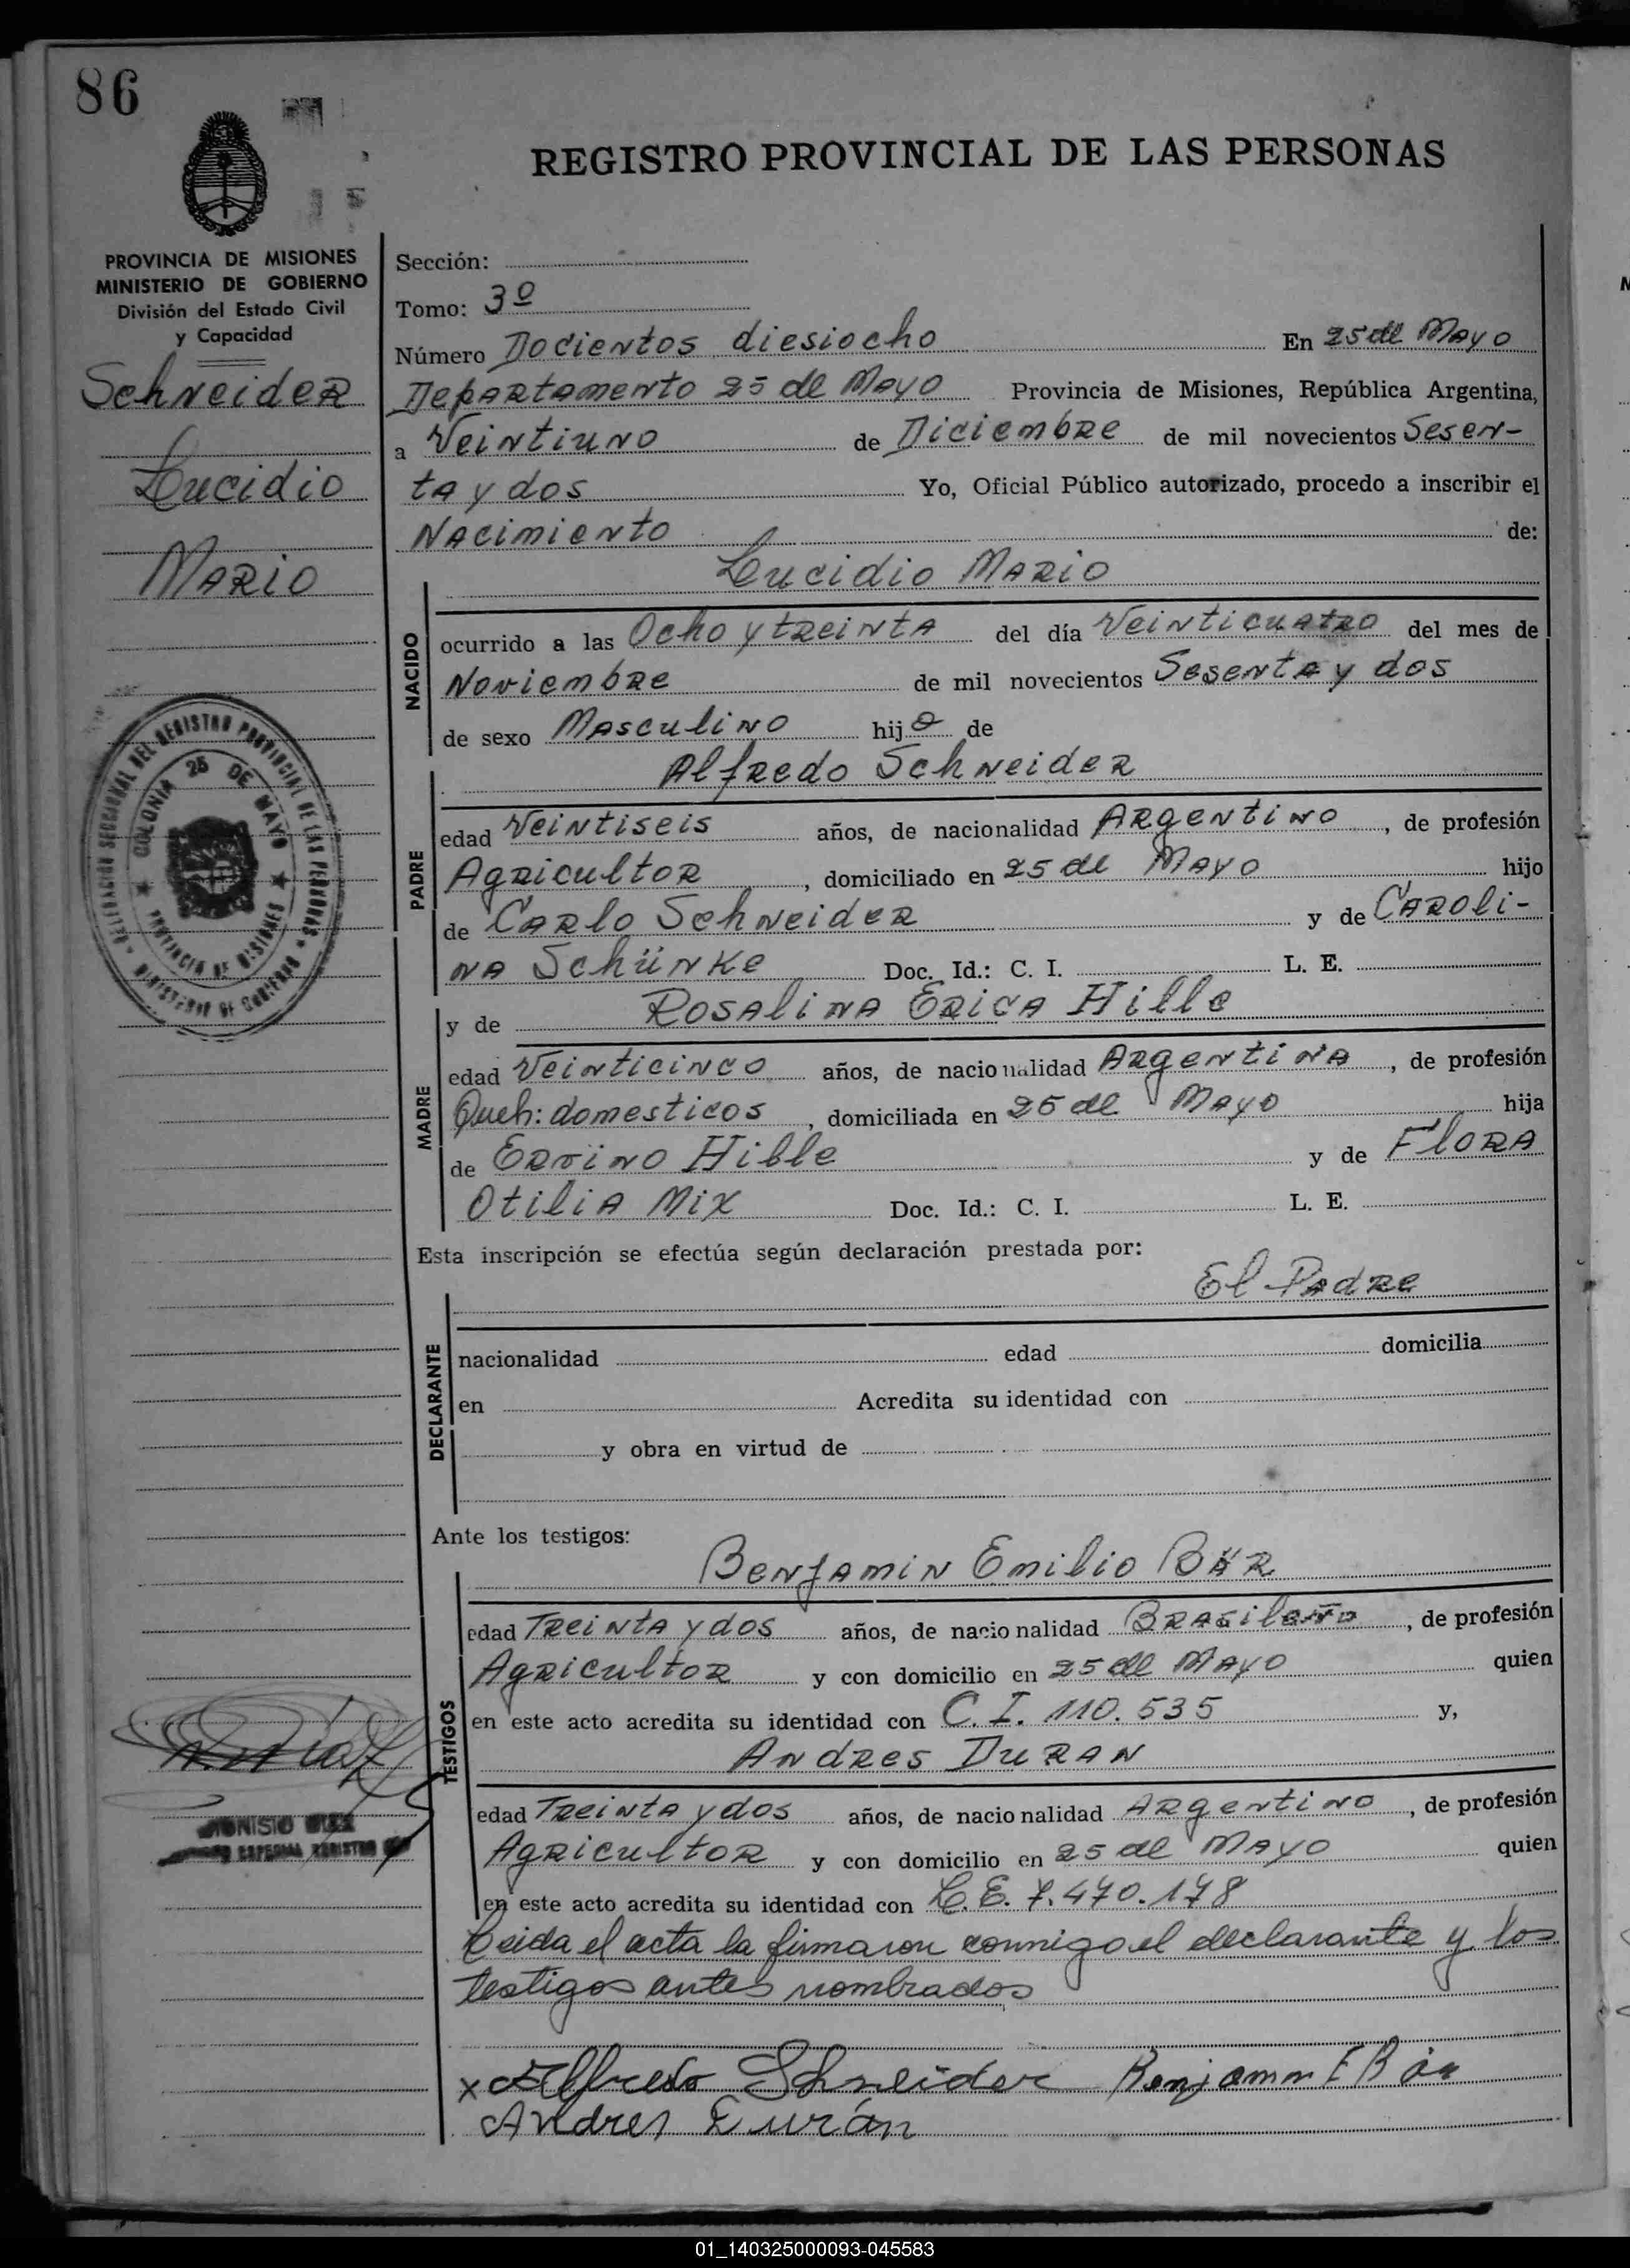 86
REGISTRO PROVINCIAL DE LAS PERSONAS
PROVINCIA DE MISIONES
MINISTERIO DE GOBIERNO
División del Estado Civil
y Capacidad
Schneider
Lucidio
Mario
Sección:
Tomo: 3º
Número Docientos diesiocho En 25 de Mayo
Departamento 25 de Mayo Provincia de Misiones, República Argentina,
a Veintiuno de Diciembre de mil novecientos Sesen-
ta y dos Yo, Oficial Público autorizado, procedo a inscribir el
Nacimiento de:
Lucidio Mario
NACIDO
ocurrido a las Ocho y treinta del día Veinticuatro del mes de
Noviembre de mil novecientos Sesenta y dos
de sexo Masculino hijo de
Alfredo Schneider
PADRE
edad Veintiseis años, de nacionalidad Argentino, de profesión
Agricultor, domiciliado en 25 de Mayo hijo
de Carlo Schneider y de Caroli-
na Schünke Doc. Id.: C. I. L. E.
y de Rosalina Erica Hille
MADRE
edad Veinticinco años, de nacionalidad Argentina, de profesión
Queh: domesticos, domiciliada en 25 de Mayo hija
de Hille y de Flora
Otilia Mix Doc. Id.: C. I. L. E.
Esta inscripción se efectúa según declaración prestada por:
El Padre
DECLARANTE
nacionalidad edad domicilia
en Acredita su identidad con
y obra en virtud de
Ante los testigos:
Benjamin Emilio Bär
TESTIGOS
edad Treinta y dos años, de nacionalidad Brasileño, de profesión
Agricultor y con domicilio en 25 de Mayo quien
en este acto acredita su identidad con C. I. 110.535 y,
Andres Duran
edad Treinta y dos años, de nacionalidad Argentino, de profesión
Agricultor y con domicilio en 25 de Mayo quien
en este acto acredita su identidad con L. E. 7.470.178
Leida el acta la firmaron conmigo el declarante y los
testigos antes nombrados
x Alfredo Schneider Benjamin E Bär
Andres Durán
DELEGACIÓN SECCIONAL DEL REGISTRO PROVINCIAL DE LAS PERSONAS
MINISTERIO DE GOBIERNO
COLONIA 25 DE MAYO
PROVINCIA DE MISIONES
01_140325000093-045583